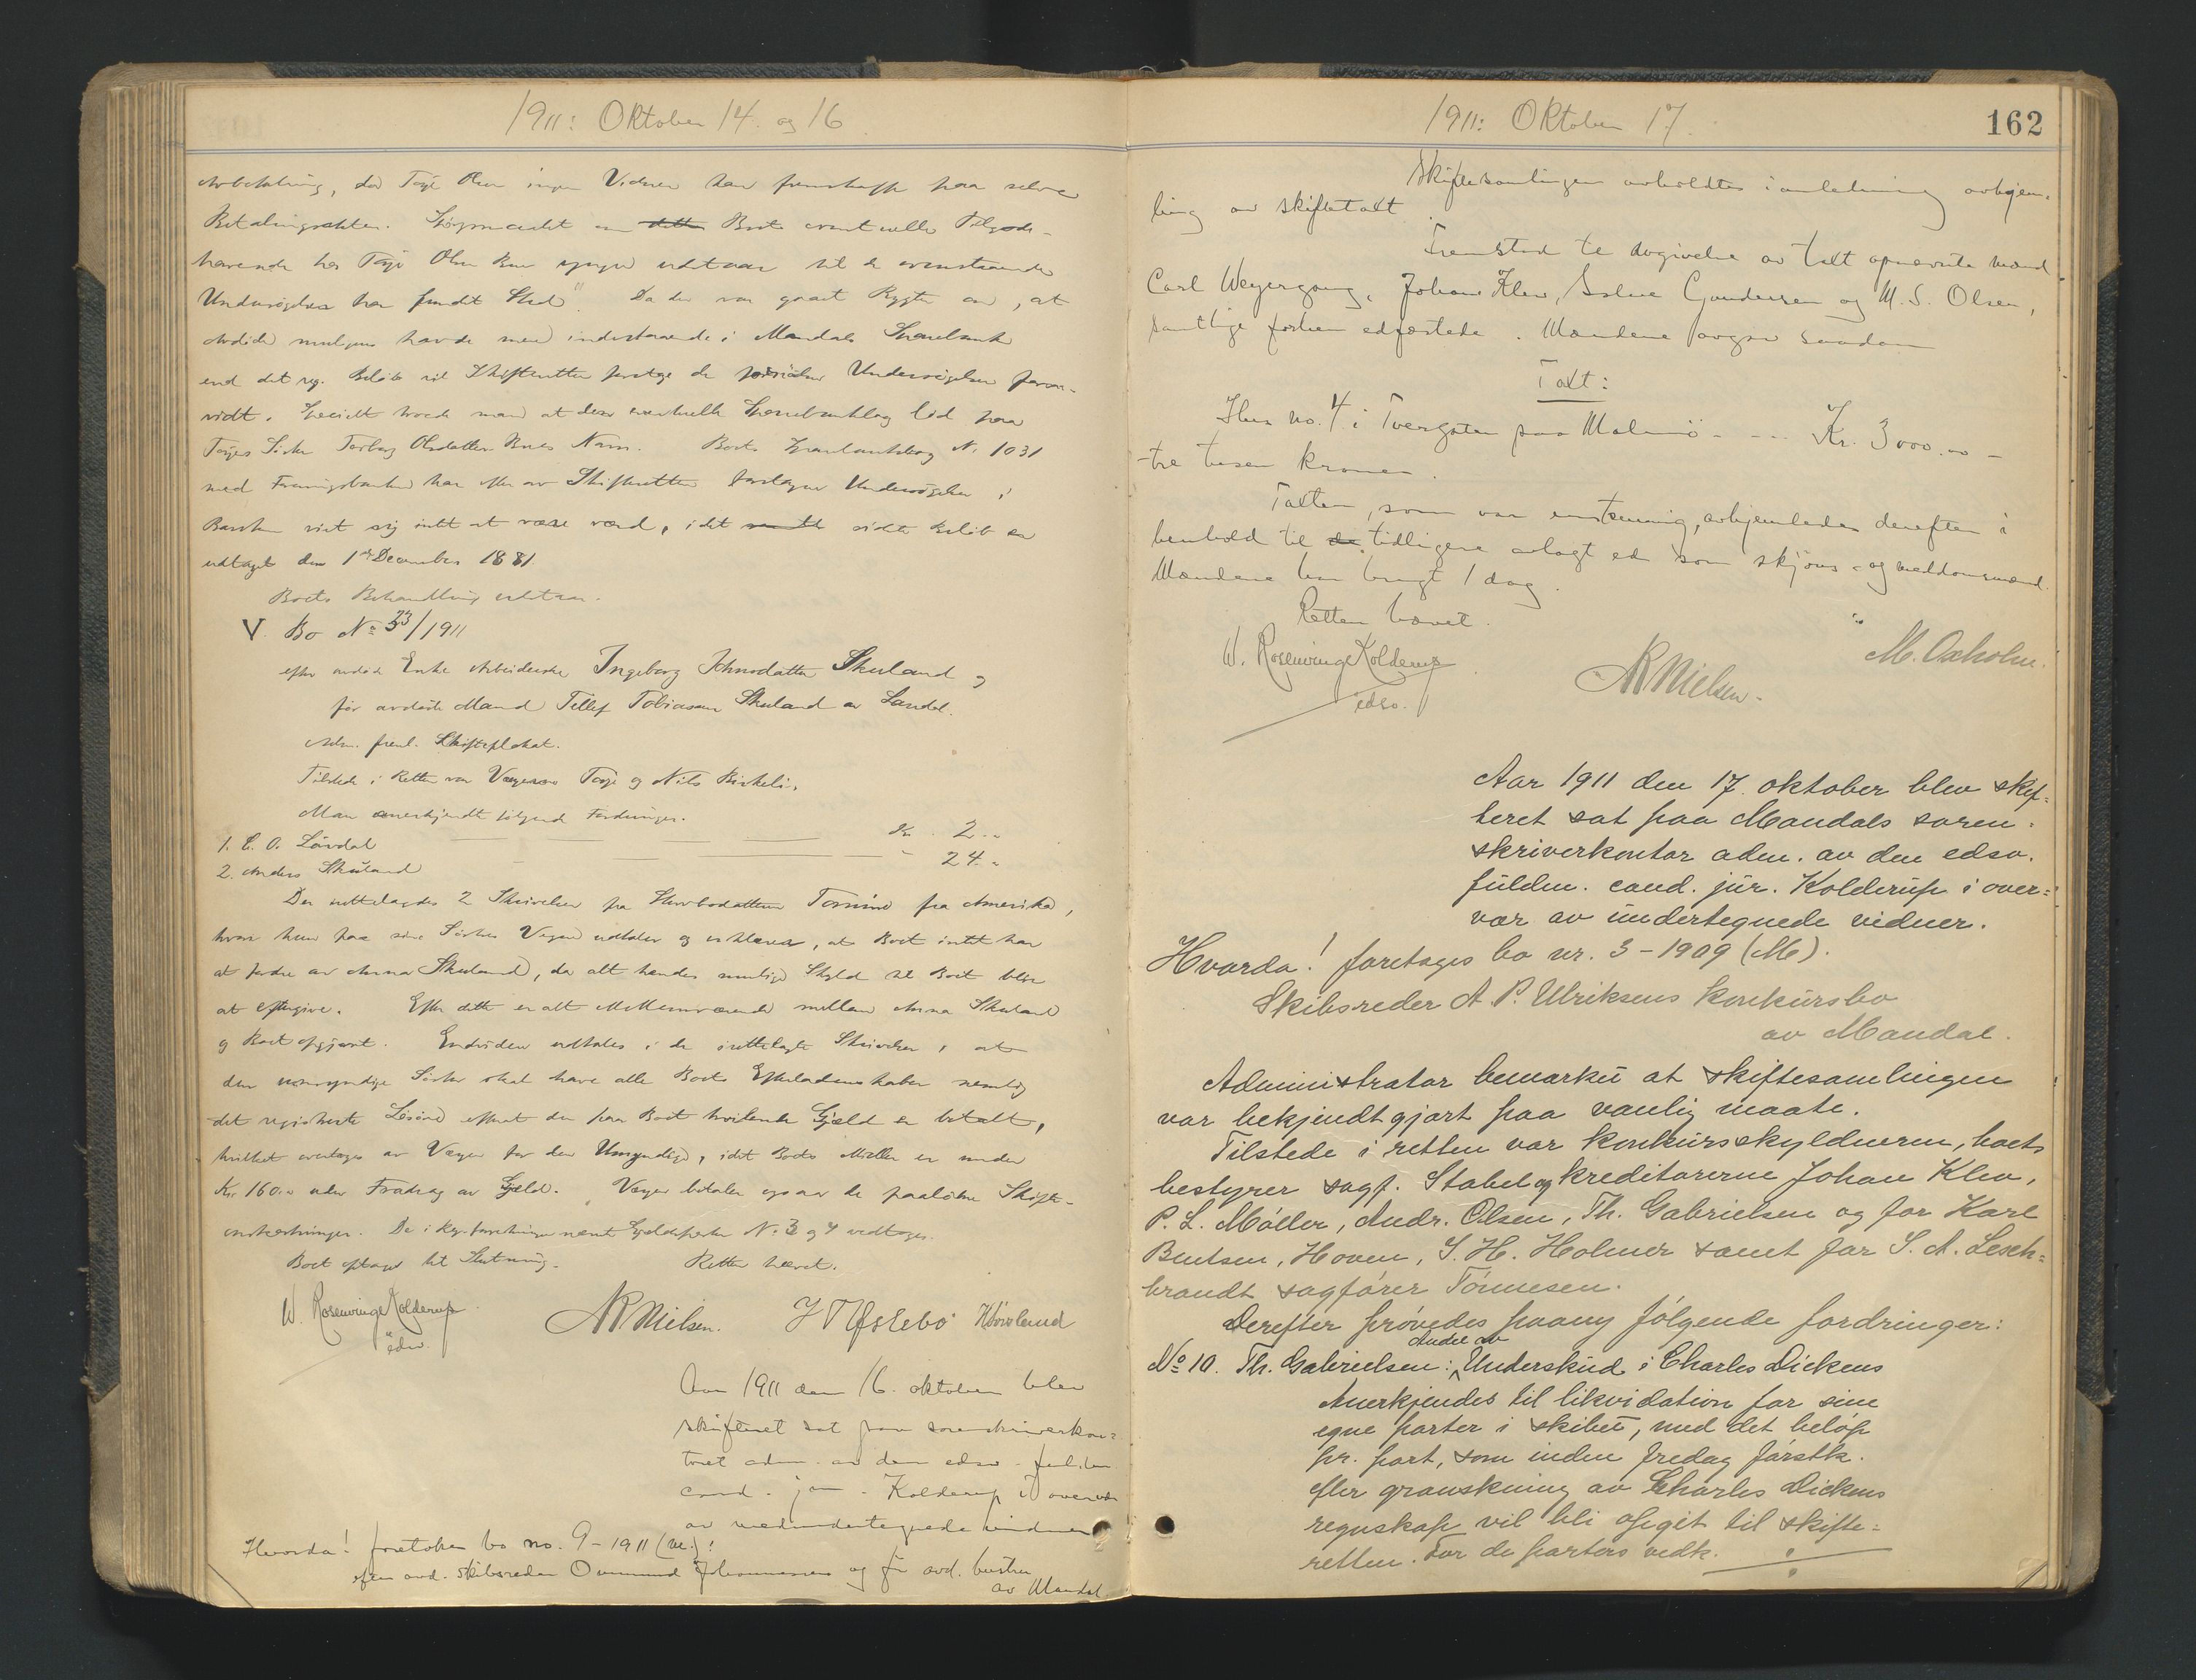 1911: Oktober 14. og 16
Avbetaling, da Taje Olsen ingen Vidner kan fremskaffe paa selve
Betalingsakten. Spørsmaalet om dette Boets eventuelle Tilgode-
havende hos Olsen Bue utstaar til de ovenstaaende
Undersøgelser har fundet Sted". Da der var gaaet Rygter om, at
Avdøde muligens havde mere indestaaende i Mandals Sparebank
end det reg. Beløb vil Skifteretten foretage de Undersøgelser
vidt. Specielt troede man at den eventuelle Sparebankbog lød paa
Tajes Søster Olsdatter Bues Navn. Boets Sparebankbog No 1031
med har efter av Skifteretten foretagne Undersøgelser i
Banken vist sig intet at være værd, idet sidste Beløb er
udtaget den 1ste December 1881
Boets Behandling utstaar.
V. Bo No 33/1911
efter avdøde Enke Arbeiderske Ingeborg Johnsdatter Skuland og
før avdøde Mand Tellef Tobiassen Skuland av Landal.
Adm. freml. Skifteplakat.
Tilstede i Retten var Vergerne Taje og Nils Birkeli.
Man anerkjendte følgende Fordringer.
1. E. O. Løvdal Kr. 2.-
2. Anders Skuland - 24.-
Der irettelagdes 2 Skrivelser fra Stervbodatteren Tomine fra Amerika,
hvor hun paa sin Søsters Vegne udtaler og erklærer, at Boet intet har
at fordre av Anna Skuland, da alt hendes mulige Skyld til Boet blir
at eftergive. Efter dette er alt Mellemværende mellem Anna Skuland
og Boet opgjort. Endvidere udtales i de irettelagte Skrivelser, at
den umyndige Søster skal have alle Boets Efterladenskaber nemlig
det registrerte Løsøre efterat den paa Boet hvilende Gjæld er betalt,
hvilket overtages av Vergen for den Umyndige, idet Boets Midler er under
Kr. 160.00 uden Fradrag av Gjæld. Vergen betaler ogsaa de paaløbne Skifte-
omkostninger. De i Reg.forretningen nævnte Gjeldsposter No. 3 og 4 vedtoges.
Boet optages til Slutning. Retten hævet.
W. Rosenvinge Kolderup
edsv.
N R Nielsen. H Hovland
Aar 1911 den 16. oktober blev
skifteret sat paa sorenskriverkon-
toret adm. av den edsv. fuldm.
cand. jur. Kolderup i overvær
av medundertegnede vidner
Hvorda! foretokes bo no. 9-1911 (M.):
efter avd. skibsreder Ommund Johannessen og før avd. hustru
av Mandal.
1911: Oktober 17.
162
Skiftesamlingen avholdtes i anledning avhjem-
ling av skiftetakt.
Fremstod til avgivelse av takt opnævnte mænd
Carl Weyergang, Johan Klev, Salve Gundersen og M. S. Olsen,
samtlige forhen edfæstede. Mændene avgav saadan
Takt:
Hus no. 4 i Tvergaten paa Malmö - - - - Kr. 3000.00 -
tre tusen kroner.
Takten, som var enstemmig, avhjemledes derefter i
henhold til de tidligere avlagt ed som skjöns- og meddomsmænd.
Mændene har brugt 1 dag.
Retten hævet.
W. Rosenvinge Kolderup
edsv.
N R Nielsen.
M. Oxholm.
Aar 1911 den 17. oktober blev skif-
teret sat paa Mandals soren-
skriverkontor adm. av den edsv.
fuldm. cand. jur. Kolderup i over-
vær av undertegnede vidner.
Hvorda! foretages bo nr. 3-1909 (M).
Skibsreder A. P. Ulriksens konkursbo
av Mandal.
Administrator bemærket at skiftesamlingen
var bekjendtgjort paa vanlig maate.
Tilstede i retten var konkursskyldneren, boets
bestyrer sagf. Stabel og kreditorerne Johan Klev,
P. L. Möller, Andr. Olsen, Th. Gabrielsen og for Karl
Bentsen, Hoven, S. H. Holmer samt for S. A. Lesch-
brandt sagförer Tönnesen.
Derefter prövedes paany fölgende fordringer:
No 10. Th. Gabrielsen: Andel av Underskud i Charles Dickens
Anerkjendes til likvidation for sine
egne parter i skibet, med det belöp
pr. part, som inden fredag förstk.
efter granskning av Charles Dickens
regnskap vil bli opgit til skifte-
retten. For de parters vedk.